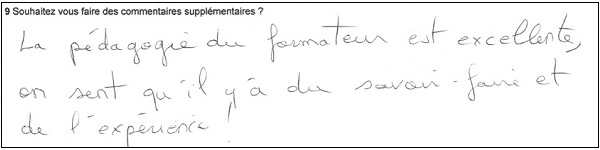 9 Souhaitez vous faire des commentaires supplémentaires ?
La pédagogie du formateur est excellente,
on sent qu'il y à du savoir-faire et
de l'expérience !